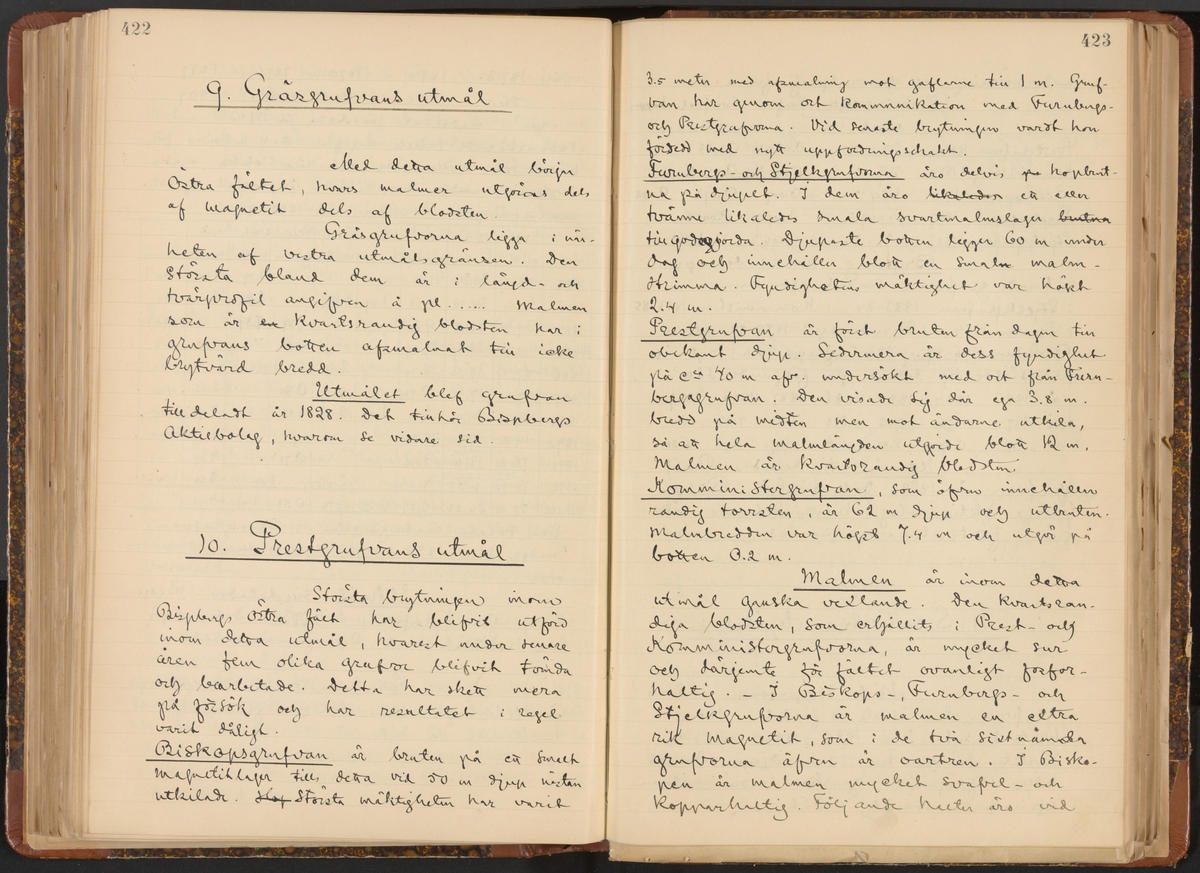 422
9. Gräsgrufvans utmål
Med detta utmål börjar
Östra fältet, hvars malmer utgöras dels
af magnetit dels af blodsten.
Gräsgrufvorna ligga i när-
heten af vestra utmålsgränsen. Den
största bland dem är i längd- och
tvärprofil angifven å pl...... Malmen
som är en kvartsrandig blodsten har i
grufvans botten afsmalnat till icke
brytvärd bredd.
Utmålet blef grufvan
tilldeladt år 1828. Det tillhör Bispbergs
Aktiebolag, hvarom se vidare sid.
10. Prestgrufvans utmål
Största brytningen inom
Bispbergs Östra fält har blifvit utförd
inom detta utmål, hvarest under senare
åren fem olika grufvor blifvit länsade
och bearbetade. Detta har skett mera
på försök och har resultatet i regel
varit dåligt.
Biskopsgrufvan är bruten på ett smalt
magnetitlager tills detta vid 50 m djup nästan
utkilade. Största mäktigheten har varit
423
3.5 meter med afsmalning mot gaflarne till 1 m. Gruf-
van har genom ort kommunikation med Furubergs-
och Prestgrufvorna. Vid senaste brytningen vardt hon
försedd med nytt uppfordringsschakt.
Furubergs- och Stjelkgrufvorna äro delvis hopbrut-
na på djupet. I dem äro likaledes ett eller
tvänne likaledes smala svartmalmslager brutna
tillgodogjorda. Djupaste botten ligger 60 m under
dag och innehåller blott en smal malm-
strimma. Fyndighetens mäktighet var högst
2.4 m.
Prestgrufvan är först bruten från dagen till
obekant djup. Sedermera är dess fyndighet
på ca 40 m afv. undersökt med ort från Furu-
bergsgrufvan. Den visade sig där ega 3.8 m.
bredd på midten men mot ändarne utkila,
så att hela malmlängden utgjorde blott 12 m.
Malmen är kvartsrandig blodsten.
Komministergrufvan, som äfven innehåller
randig torrsten, är 62 m djup och utbruten.
Malmbredden var högst 7.4 m och utgör på
botten 0.2 m.
Malmen är inom detta
utmål ganska vexlande. Den kvartsran-
diga blodsten, som erhållits i Prest- och
Komministergrufvorna, är mycket sur
och därjemte för fältet ovanligt fosfor-
haltig. – I Biskops-, Furubergs- och
Stjelkgrufvorna är malmen en extra
rik magnetit, som i de två sistnämda
grufvorna äfven är svartren. I Bisko-
pen är malmen mycket svafvel- och
kopparhaltig. Följande halter äro vid